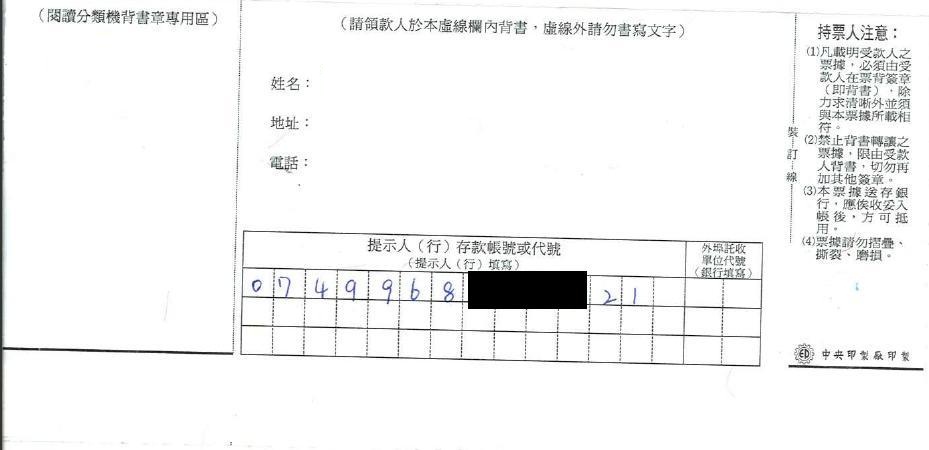 （閱讀分類機背書章專用區）
（請領款人於本虛線欄內背書，虛線外請勿書寫文字）
姓名：
地址：
電話：
提示人（行）存款帳號或代號
（提示人（行）填寫）
外埠託收
單位代號
（銀行填寫）
0749968
21
裝訂線
持票人注意：
(1)凡載明受款人之
票據，必須由受
款人在票背簽章
（即背書），除
力求清晰外並須
與本票據所載相
符。
(2)禁止背書轉讓之
票據，限由受款
人背書，切勿再
加其他簽章。
(3)本票據送存銀
行，應俟收妥入
帳後，方可抵
用。
(4)票據請勿摺疊、
撕裂、磨損。
中央印製廠印製